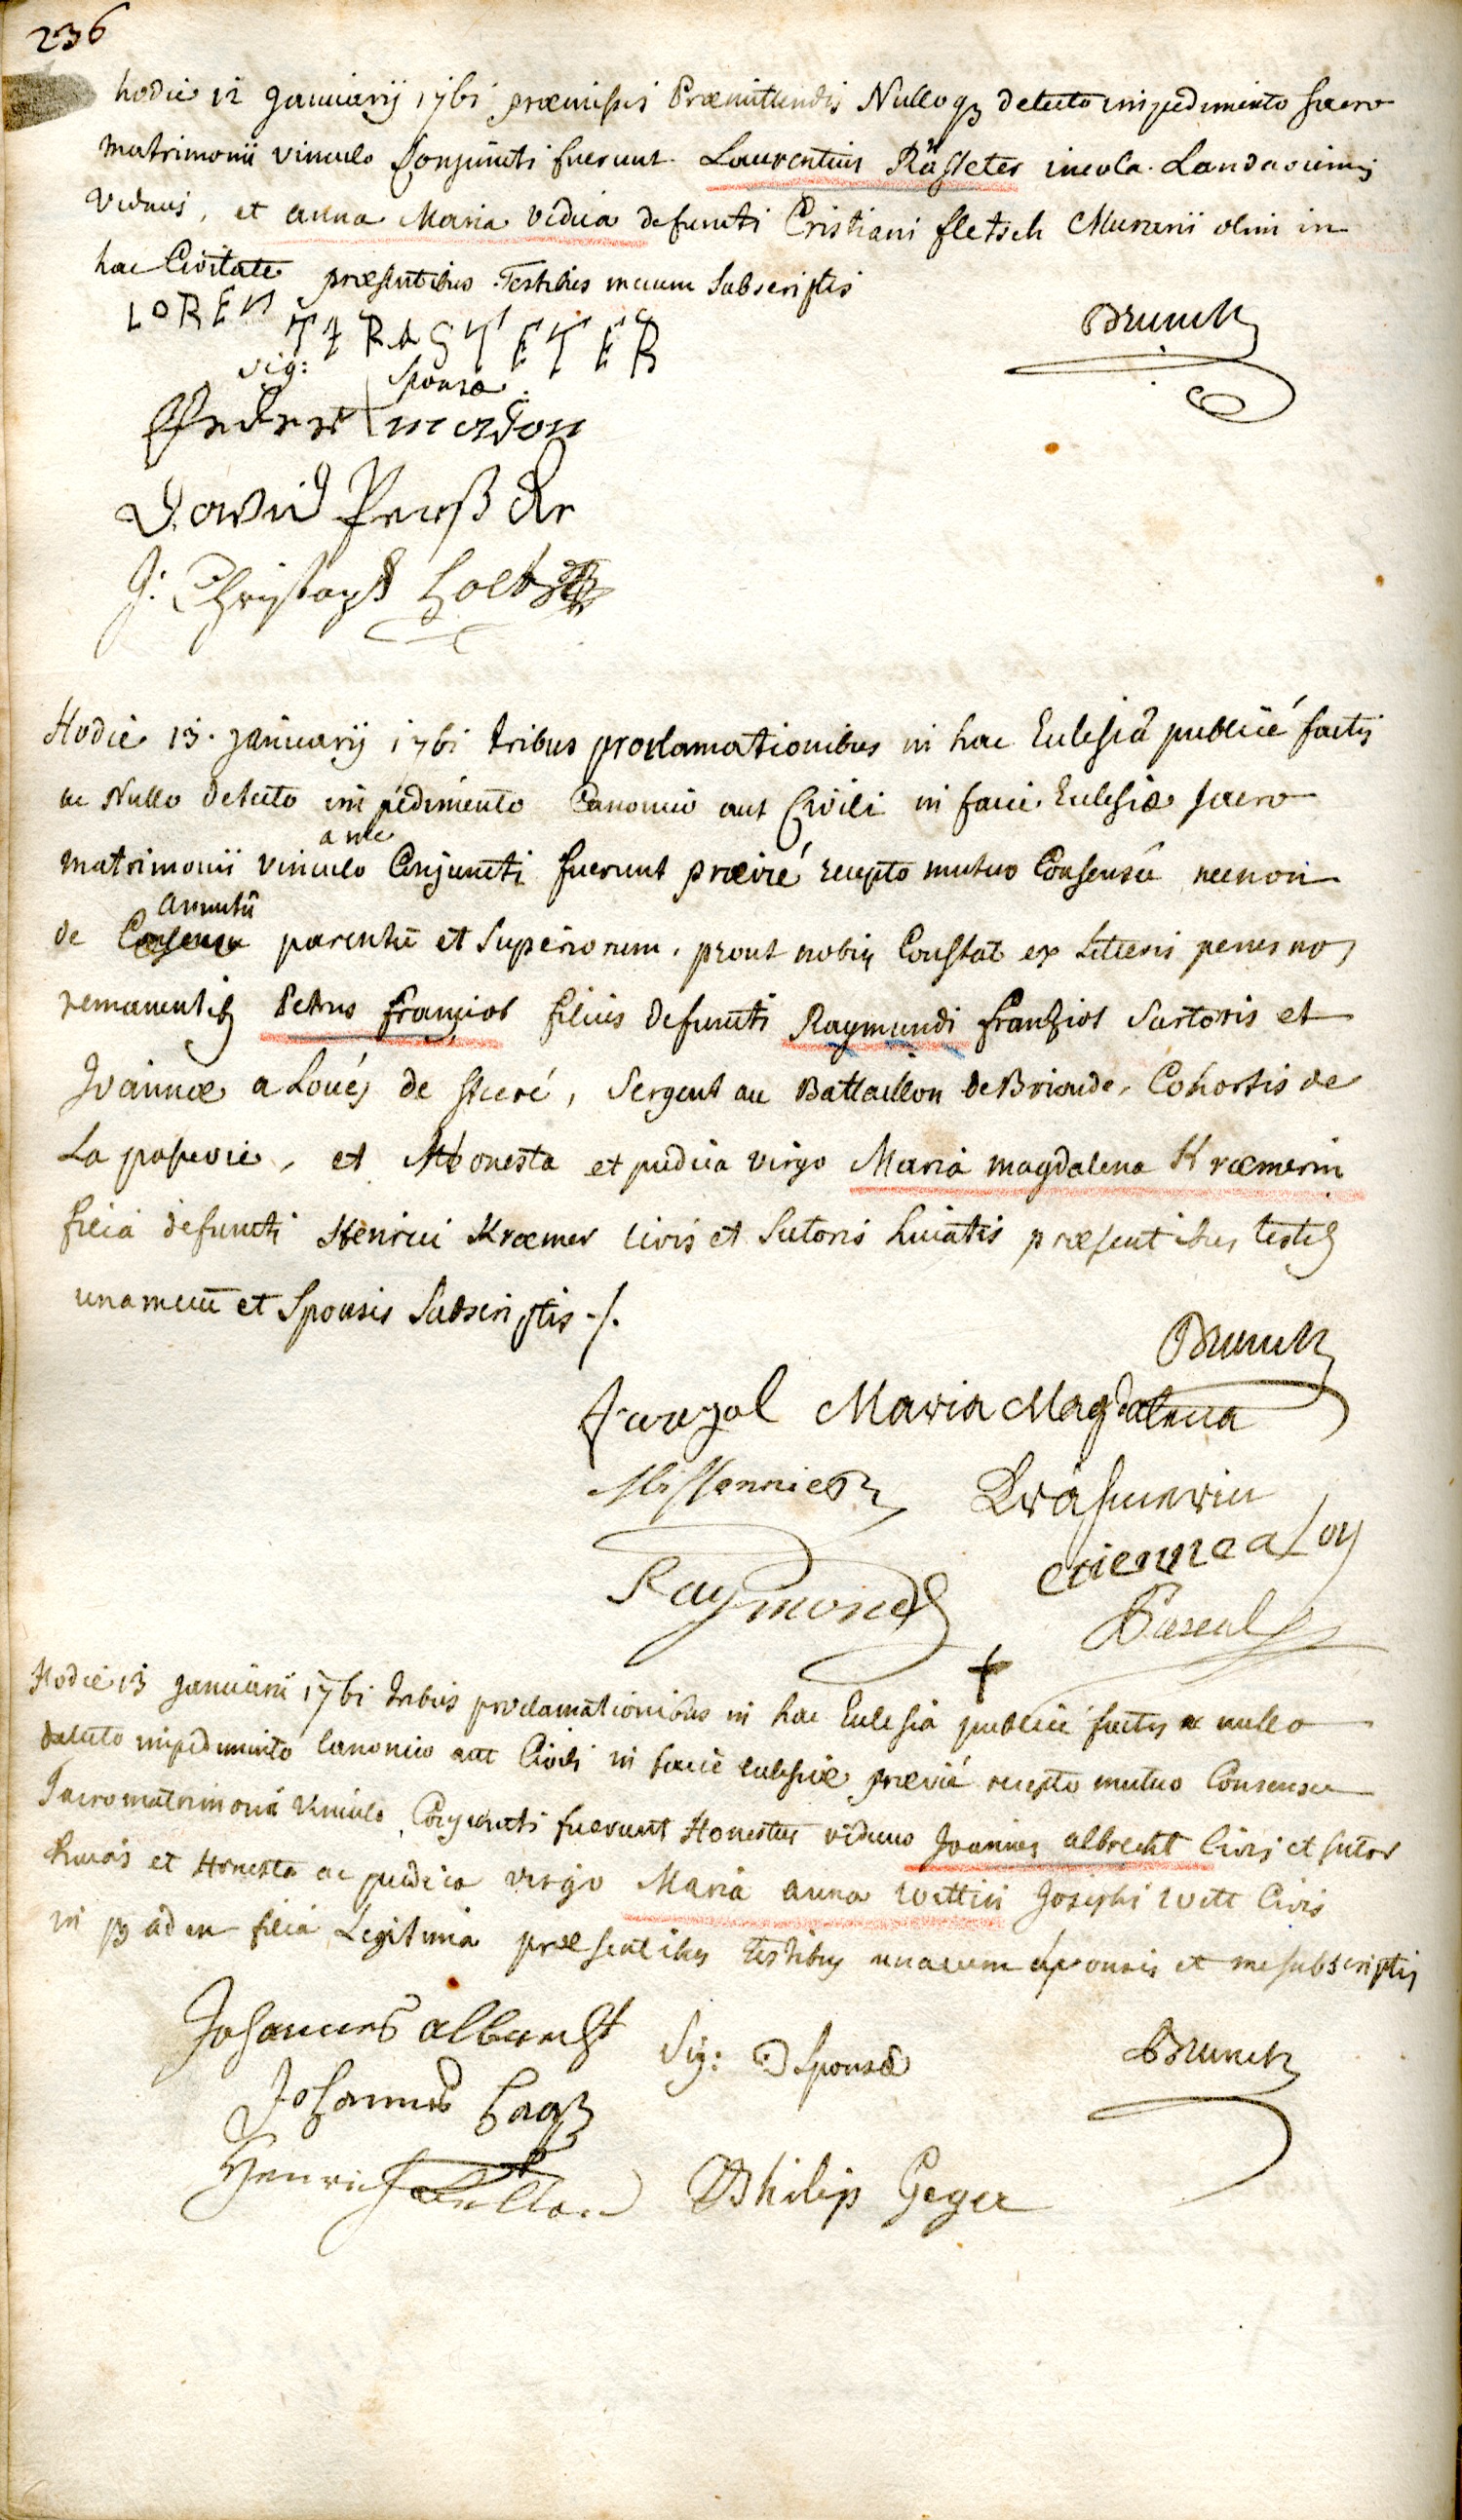 236
hodie 12 Januarij 1761 præmissis Præmittendis Nulloqz detecto impedimento sacro
matrimonii vinculo Conjuncti fuerunt Laurentius Rästeter incola Landaviensis
viduus, et anna Maria vidua defuncti Cristiani fletsch Murarii olim in
hac Civitate præsentibus Testibus mecum Subscriptis
Brunck
LOREN
RASTETER
sig: Sponsæ
David
J: Christoph
Hodie 13. Januarij 1761 tribus proclamationibus in hac Ecclesiâ publicé factis
ac Nullo detecto impedimento Canonico aut Civili in facie Ecclesiæ sacro
a me
matrimonii vinculo Conjuncti fuerunt prævié recepto mutuo Consensu necnon
annutû
de Consensu parentû et Superiorum, prout nobis Constat ex Litteris penes nos
remanentibz Petrus franziol filius defuncti Raymundi franziol Sartoris et
Joannæ a Loués de , Sergent au Battaillon de Brioude, Cohortis de
La , et Honesta et pudica virgo Maria magdalena Kræmerin
filia defuncti Henrici Kræmer civis et Sutoris huiatis præsentibus testibz
unamecû et Sponsis Subscriptis ./.
Brunck
Maria Magdalena
etienne a Loy
Raymond
Pascal
Hodie 13 Januarii 1761 tribus proclamationibus in hac Ecclesia publice factis ac nullo
detecto impedimento Canonico aut Civili in facie ecclesiæ præviá recepto mutuo Consensu
Sacro matrimonii vinculo Conjuncti fuerunt Honestus viduus Joannes albrecht Civis et sutor
huias et Honesta ac pudica virgo Maria anna Wettin Josephi Wett Civis
in filia Legitima præsentibus testibus unacum sponsis et me subscriptis
Johannes albrecht
Sig: Sponsæ
Brunck
Johannes
Henrich
Philip Geger